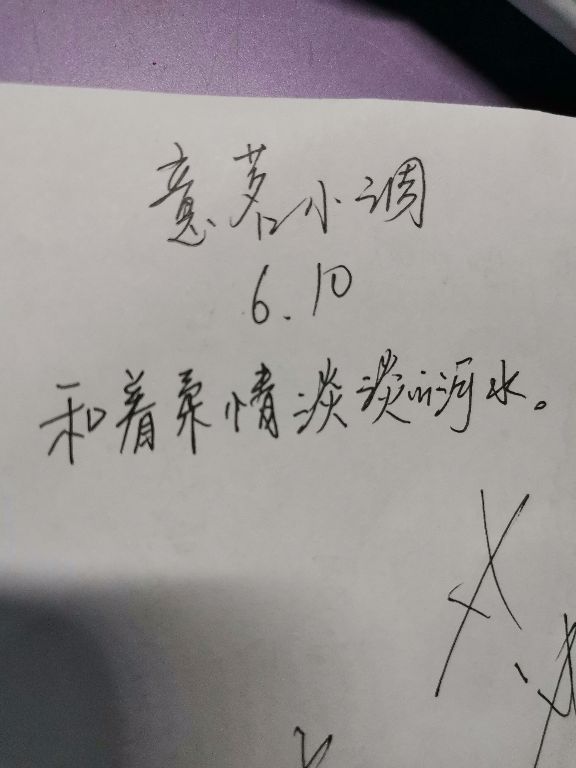 意茗小调
6.10
和着柔情淡淡的河水。